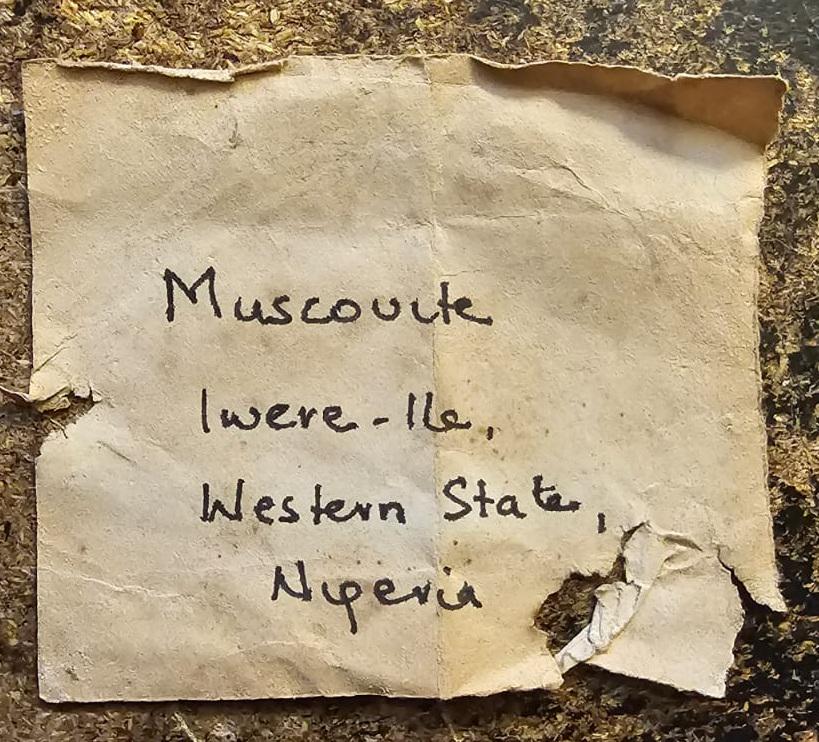 Muscovite
Iwere-Ile,
Western State,
Nigeria